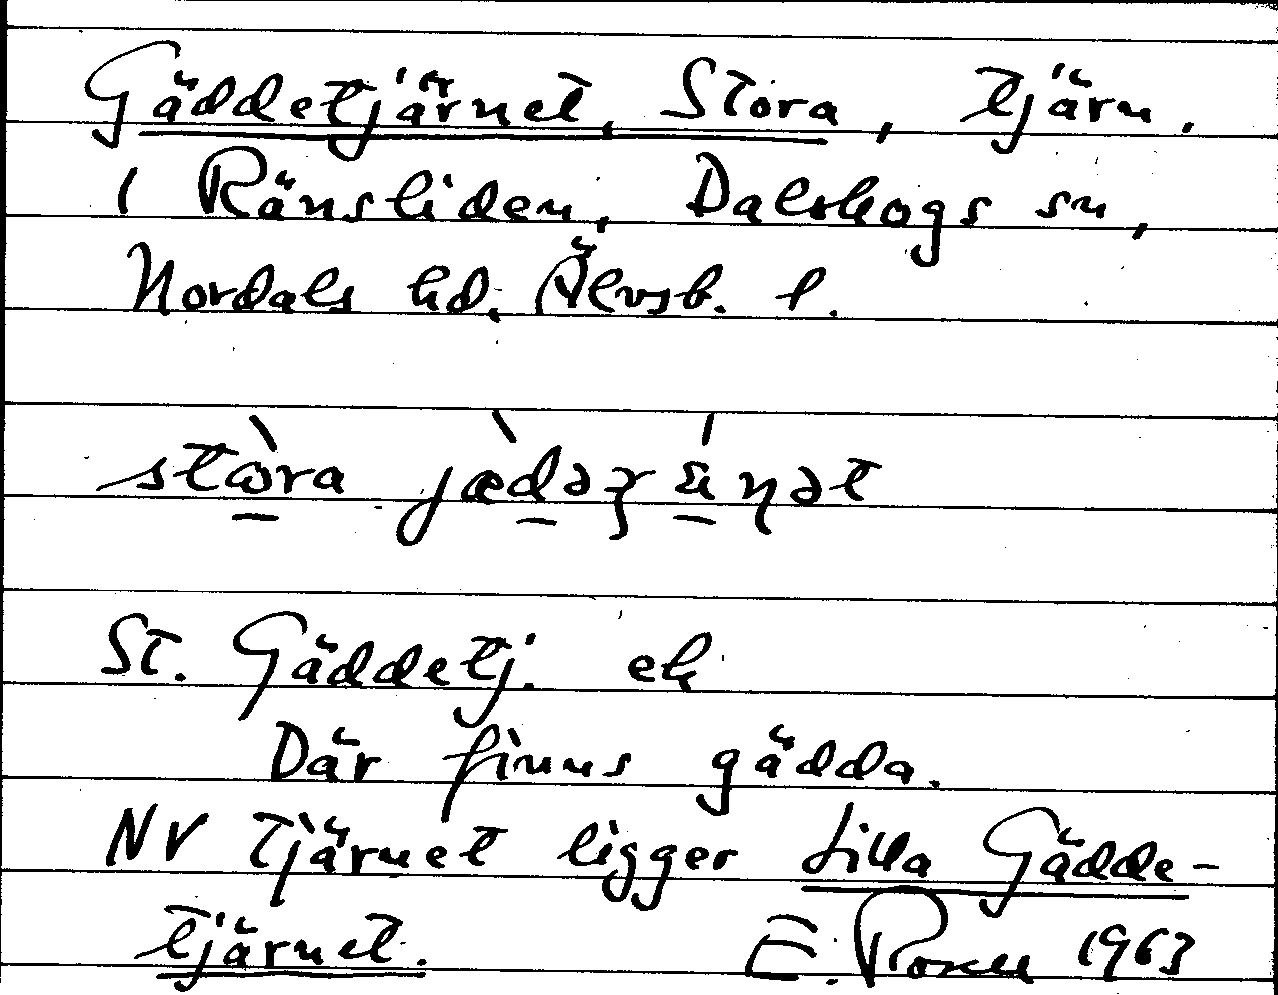 Gäddetjärnet, Stora, tjärn.
i Ränsliden, Dalskogs sn,
Nordals hd. Älvsb. l.
St. Gäddetj. ek
Där finns gädda.
NV Tjärnet ligger Lilla Gädde-
tjärnet. E. Rosen 1963